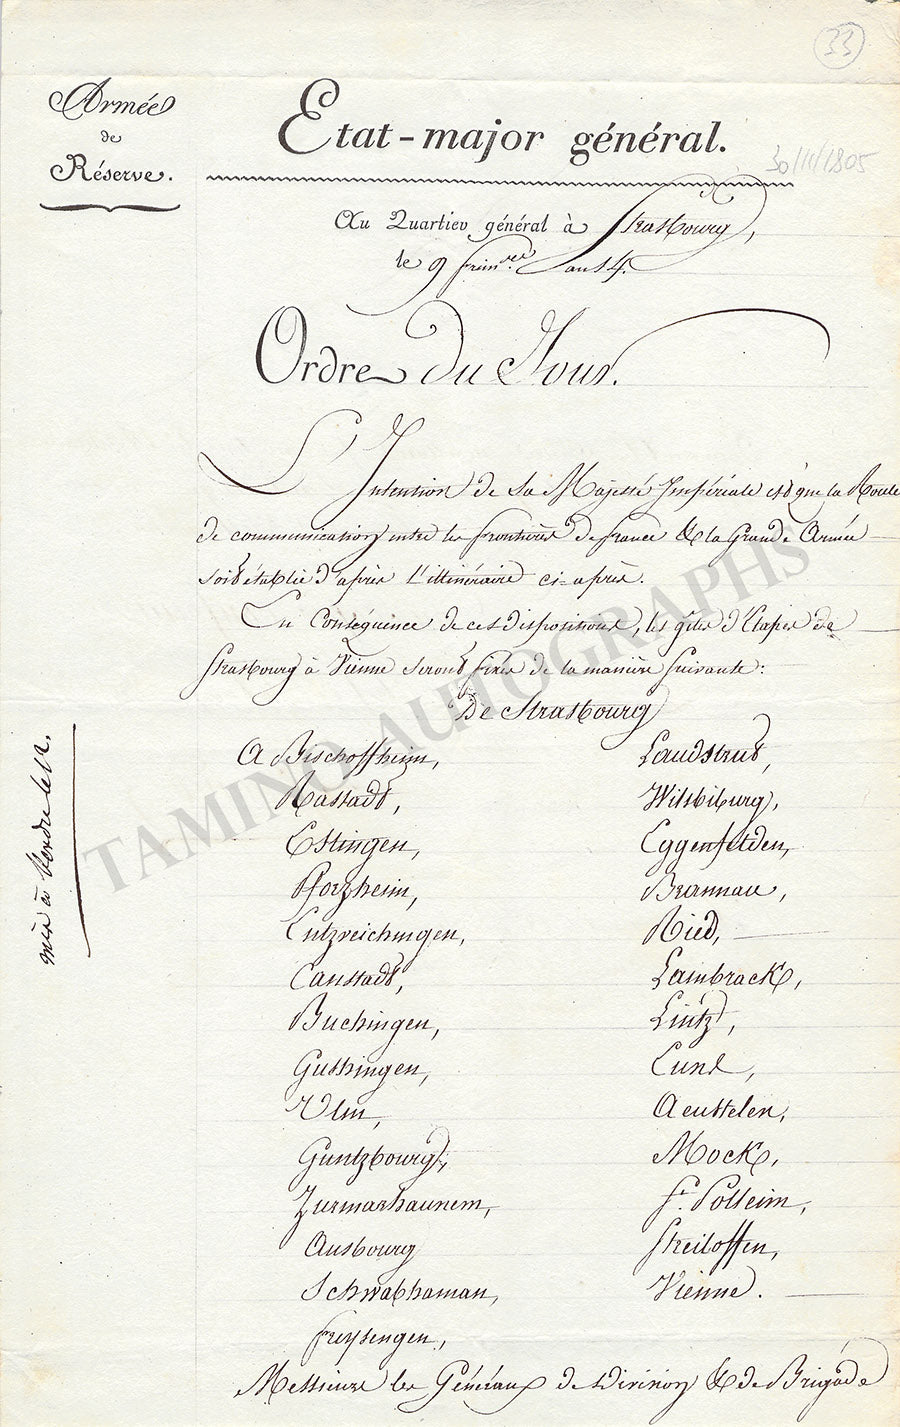 33
Armée
de
Réserve.
Etat-major général.
30/11/1805
Au Quartier général à Strasbourg,
le 9 frim.re an 14.
Ordre du Jour.
L'Intention de Sa Majesté Impériale est que la Route
de communication entre les frontières de france & la Grande Armée
soit établie d'après l'ittinéraire ci-après.
En Conséquence de ces dispositions, les gîtes d'Etapes de
Strasbourg à Vienne seront fixés de la manière suivante:
De Strasbourg
A Bischoffheim,
Rastadt,
Etlingen,
Pforzheim,
Entzveichingen,
Canstadt,
Buchingen,
Guslingen,
Ulm,
Guntzbourg,
Zurmarhaunem,
Ausbourg
Schwabhaman,
freysengen,
Landstrut,
Wilsbiburg,
Eggenfelden,
Brannau,
Ried,
Lambrack,
Lintz,
Euns,
Aeustelen,
Mock,
St. Polleim,
Streiloffen,
Vienne.
Messieurs les Généraux de Division & de Brigade
mis à l'ordre le 12.
TAMINO AUTOGRAPHS